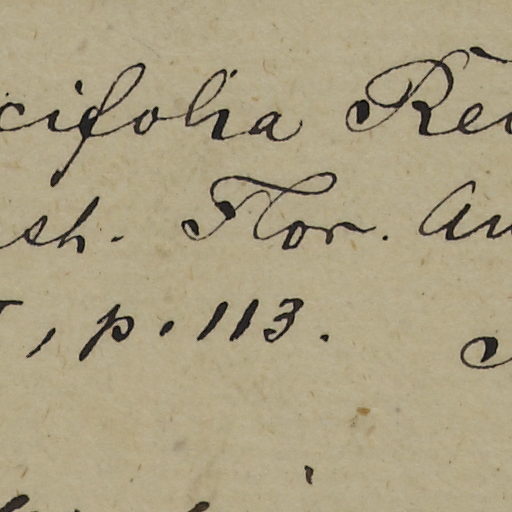 cifolia Re
sh. Flor. Au
, p. 113.